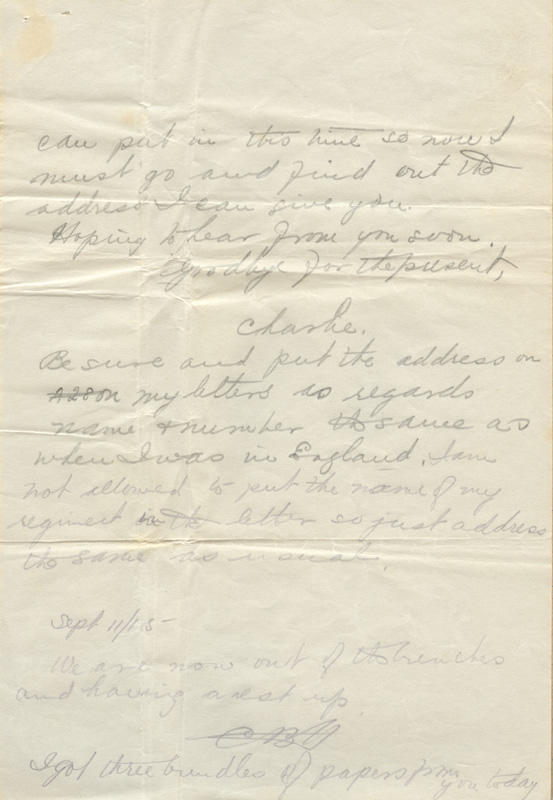 can put in this time so now I
must go and find out the
address I can give you.
Hoping to hear from you soon.
Goodbye for the present,
Charlie.
Be sure and put the address on
on my letters as regards
name & number the same as
when I was in England. I am
not allowed to put the name of my
regiment in the letter so just address
the same as usual.
Sept 11/15
We are now out of the trenches
and having a rest up
CBH
I got three bundles of papers from
you today